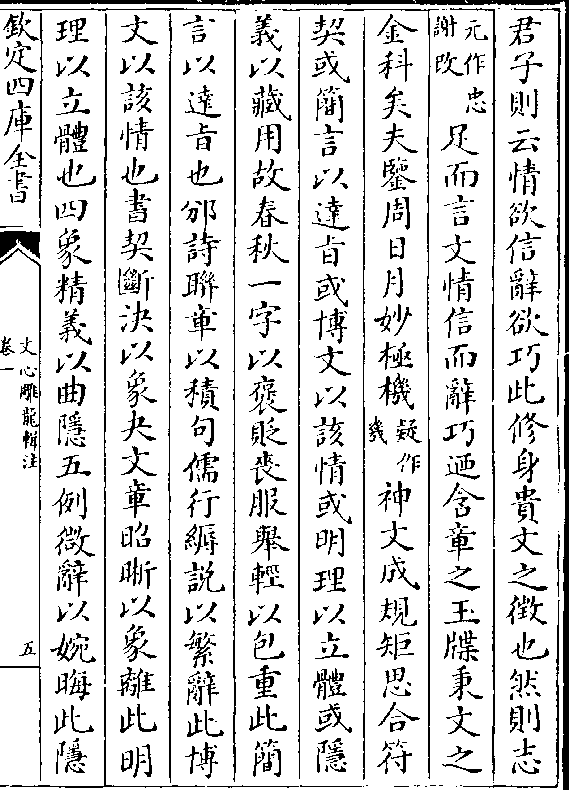 君子則云情欲信辭欲巧此修身貴文之徵也然則志
元作忠謝改足而言文情信而辭巧迺含章之玉牒秉文之
金科矣夫鑒周日月妙極機疑作幾神文成規矩思合符
契或簡言以達旨或博文以該情或明理以立體或隱
義以藏用故春秋一字以褒貶喪服舉輕以包重此簡
言以達旨也邠詩聯章以積句儒行縟説以繁辭此博
文以該情也書契斷決以象夬文章昭晰以象離此明
理以立體也四象精義以曲隱五例微辭以婉晦此隱
欽定四庫全書
文心雕龍輯注
卷一
五